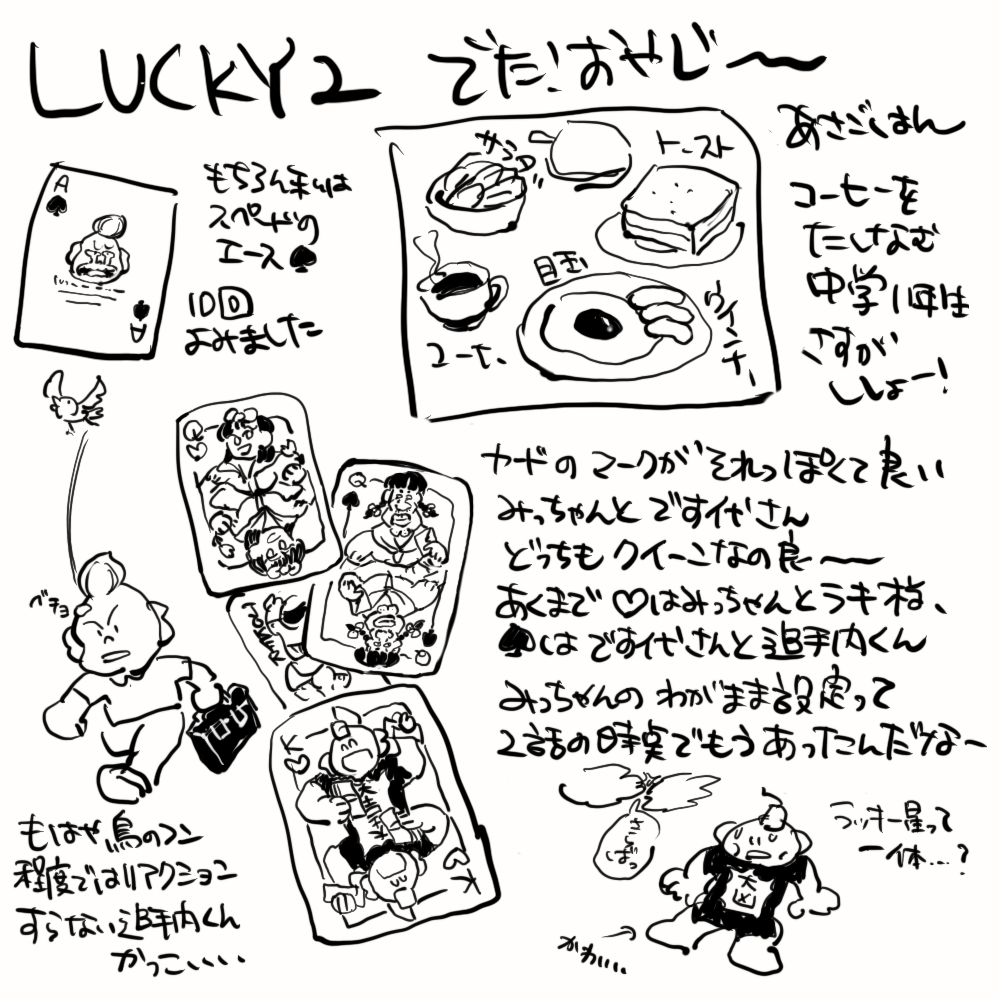 LUCKY2 でた!おやじ〜
A
もちろん私は
スペードの
エース♠
10回
よみました
A
サラダ
トースト
目玉
コーヒー
ウインナー
あさごはん
コーヒーを
たしなむ
中学1年生
さすが
ししょー!
カードのマークがそれっぽくて良い
みっちゃんとですすさん
どっちもクイーンなの良〜
あくまで♡はみっちゃんとラキ様、
♠はですよさんと追手内くん
みっちゃんのわがまま設定って
2話の時点でもうあったんだなー
Q
Q
Q
JOKER
K
K
ベチョ
もはや鳥のフン
程度ではリアクション
すらない追手内くん
かっこいい..
さしばつ
ラッキー星って
一体....?
大凶
かわいい..